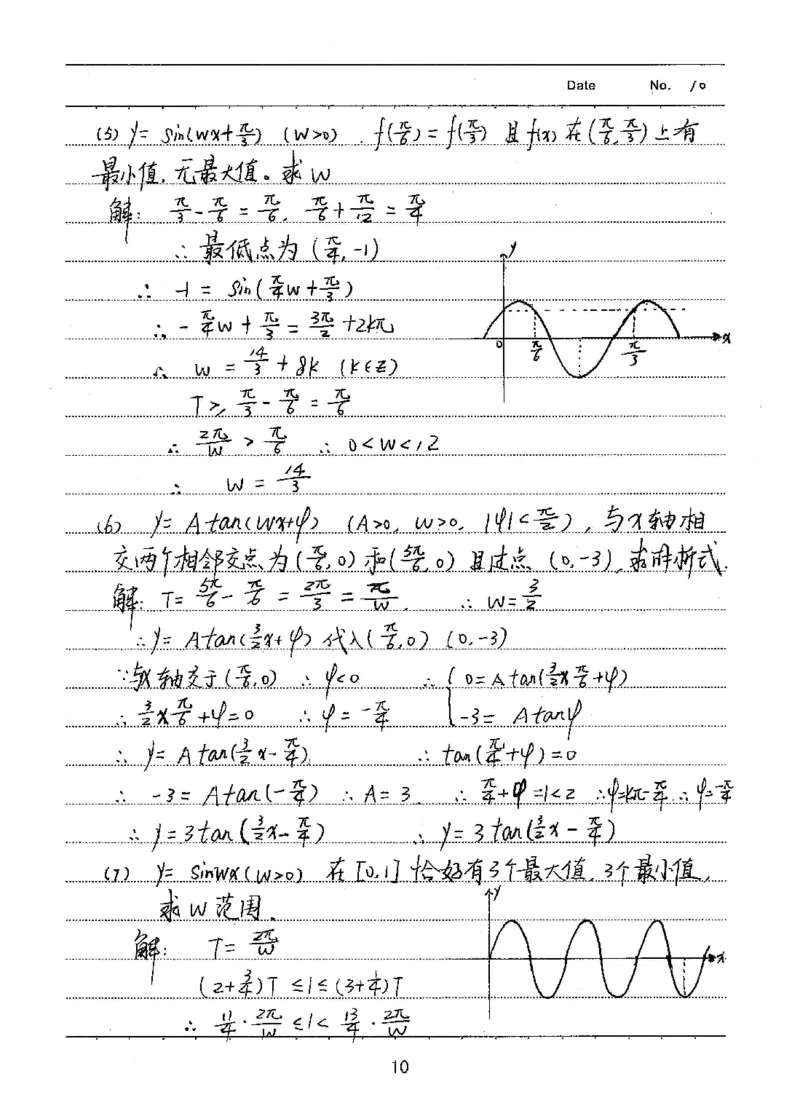 Date No. 10
(5) y= sin(wx+π/3) (w>0). f(π/6)=f(π/3) 且f(x)在(π/6,π/3)上有
最小值,无最大值。求w
解: π/3-π/6=π/6, π/6+π/12=π/4
∴ 最低点为(π/4,-1)
y
∴ -1 = sin(π/4w+π/3)
∴ -π/4w+π/3=3π/2+2kπ
0 π/6 π/3 x
∴ w = 14/3+8k (k∈Z)
T≥π/3-π/6=π/6
∴ 2π/w > π/6 ∴ 0<w<12
∴ w = 14/3
(6) y= A tan(wx+φ) (A>0, w>0, |φ|<π/2), 与x轴相
交两个相邻交点为(π/6,0)和(5π/6,0)且过点 (0,-3),求解析式.
解: T= 5π/6-π/6=2π/3=π/w. ∴ w=3/2
∴ y= A tan(3/2x+φ) 代入(π/6,0) (0,-3)
∵与x轴交于(π/6,0) ∴ φ<0 ∴ { 0=A tan(3/2×π/6+φ)
∴ 3/2×π/6+φ=0 ∴ φ=-π/4 -3= A tanφ
∴ y= A tan(3/2x-π/4) ∴ tan(π/4+φ)=0
∴ -3= A tan(-π/4) ∴ A=3. ∴ π/4+φ=kπ ∴φ=kπ-π/4 ∴φ=-π/4
∴ y=3tan(3/2x-π/4) ∴ y=3tan(3/2x-π/4)
(7) y= sinwx(w>0) 在[0,1]恰好有3个最大值,3个最小值,
求w范围.
y
解: T= 2π/w
x
(2+3/4)T ≤1≤(3+1/4)T
∴ 11/4·2π/w ≤1< 13/4·2π/w
10